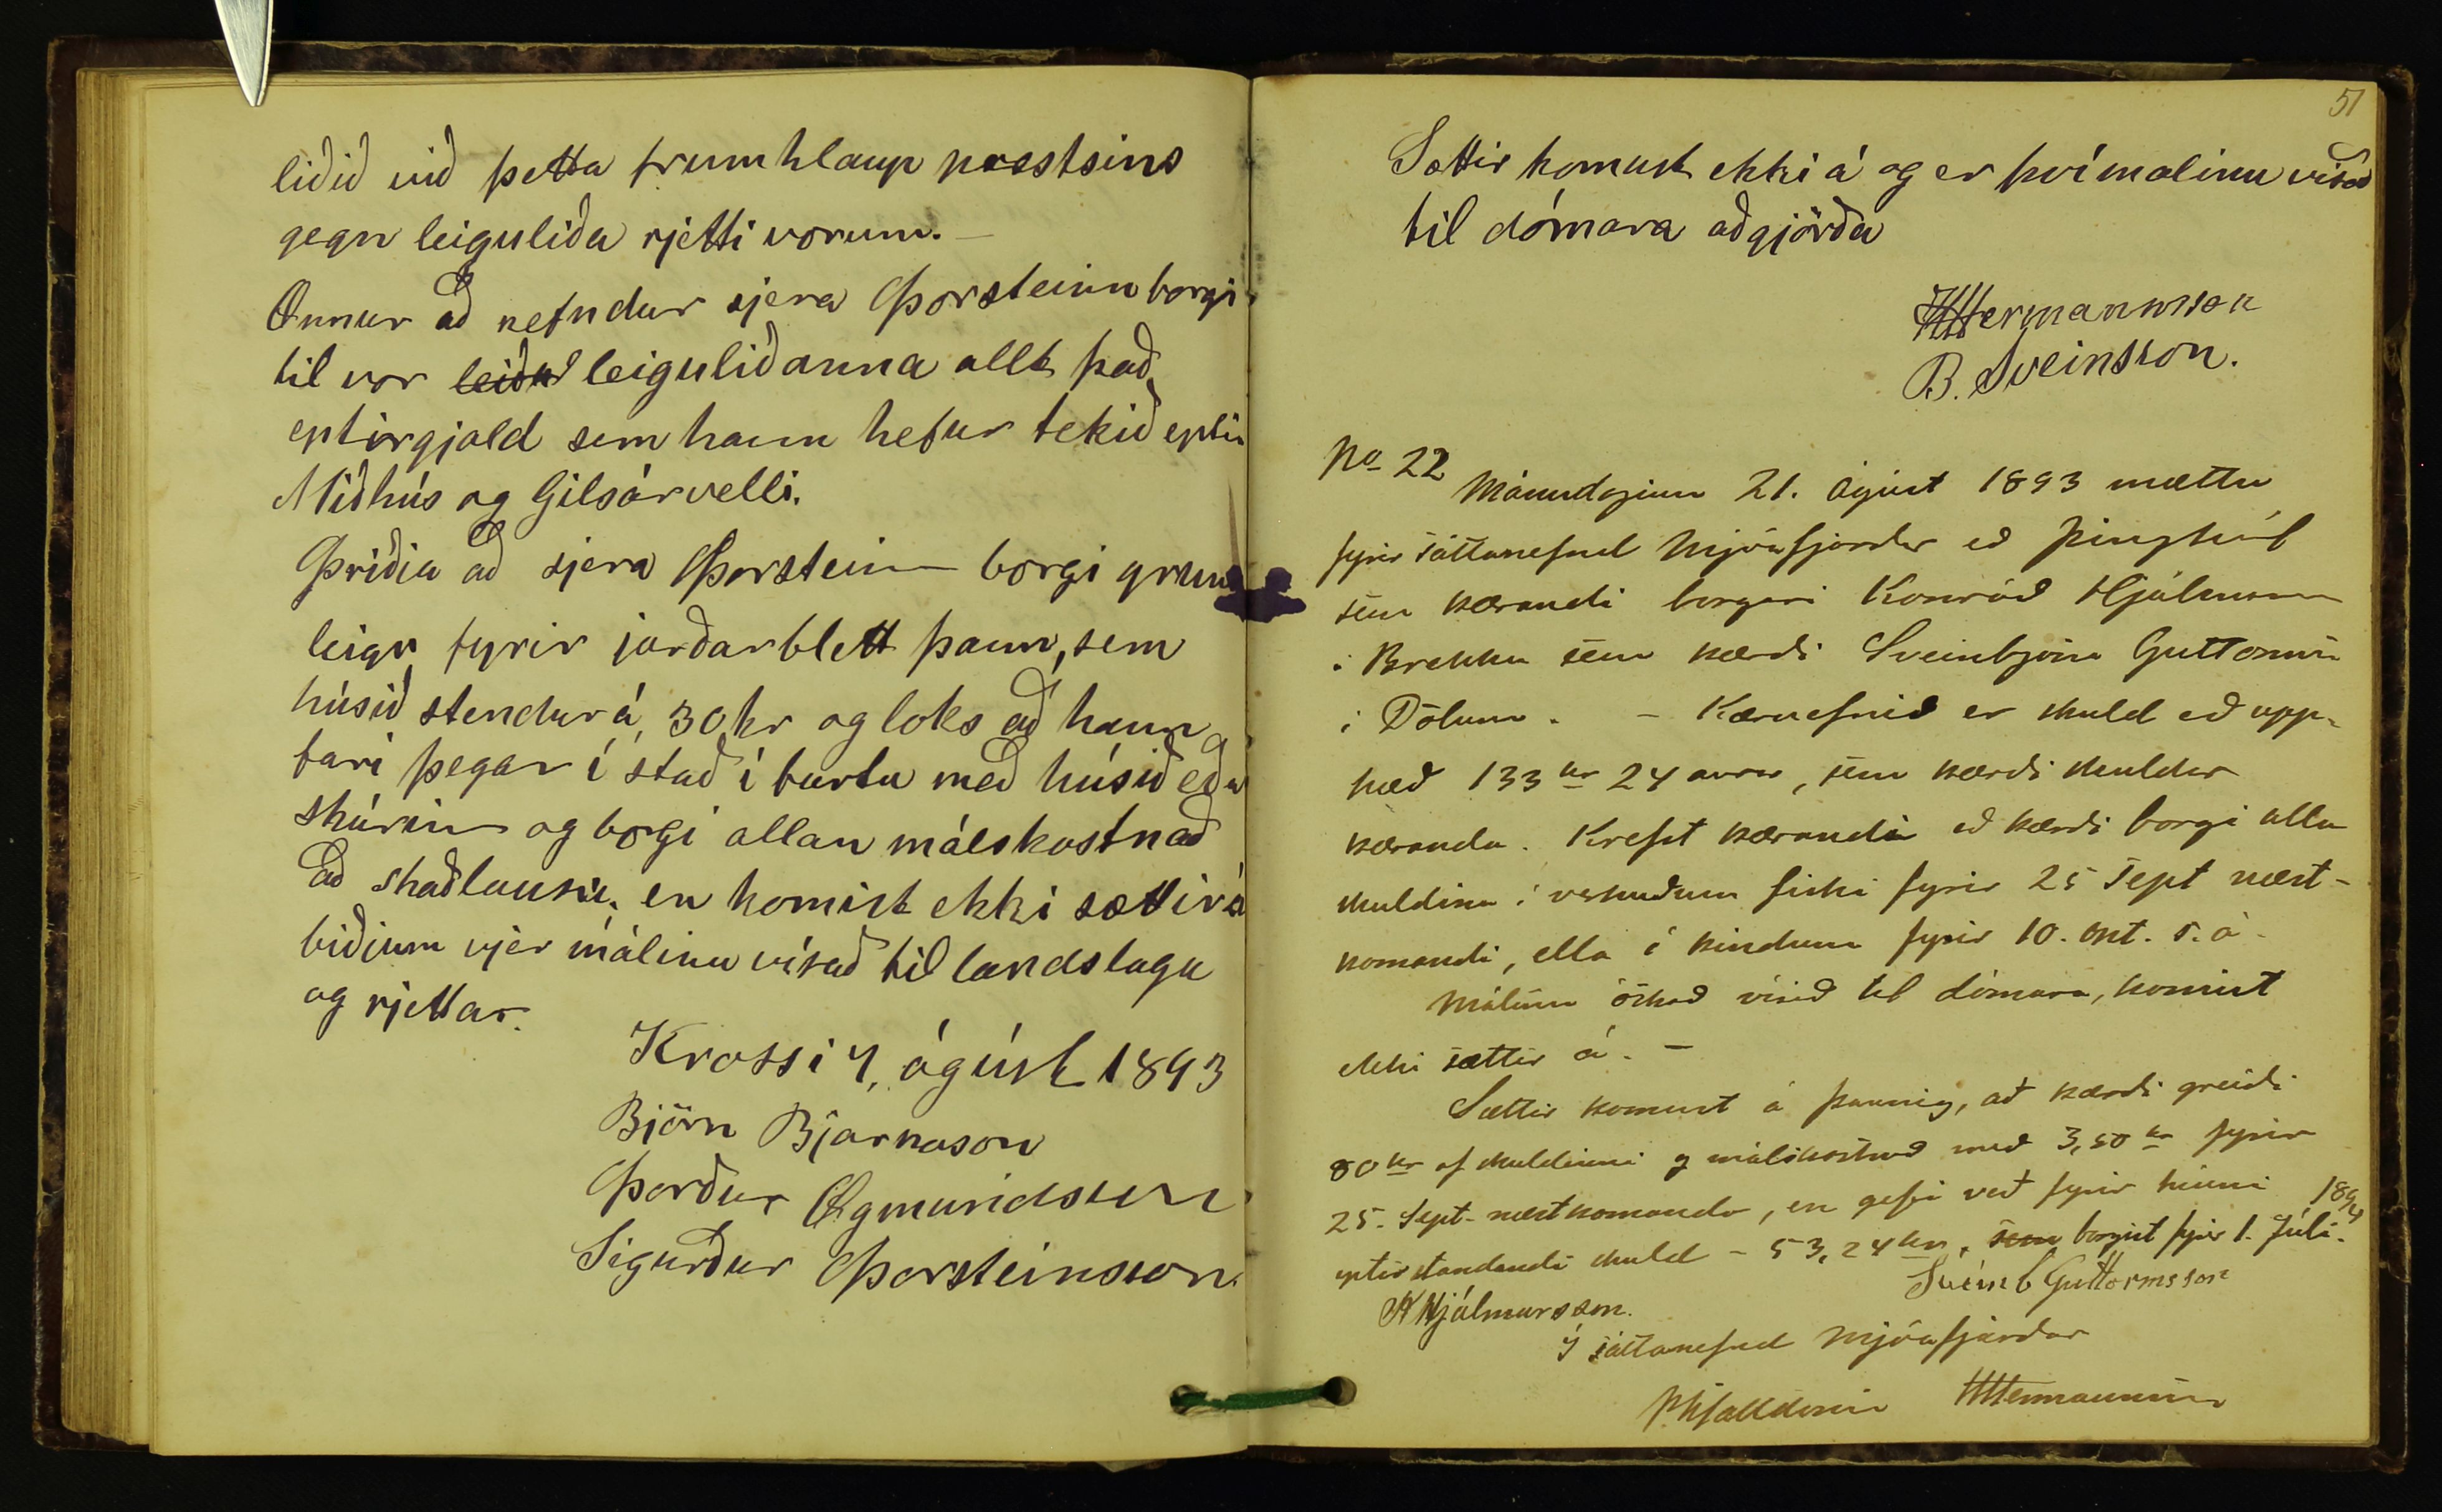 liðið við þetta frumhlaup prestsins
gegn leiguliða rjetti vorum. —
Önnur að nefndur sjera Þorsteinn borgi
til vor leiðu leiguliðanna allt það
eptirgjald sem hann hefur tekið eptir
Miðhús og Gilsárvelli.
Þriðia að sjera Þorsteinn borgi grunn
leigu fyrir jarðarblett þann, sem
húsið stendur á, 30 kr og loks að hann
fari þegar í stað í burtu með húsið eða
skúrinn og borgi allan málskostnað
að skaðlausu. en komist ekki sættir á
biðium vjer málinu vísað til landslaga
og rjettar.
Krossi 4, ágúst 1893
Björn Bjarnason
Þorður Ögmundsson
Sigurður Þorsteinsson.
51
Sættir komust ekki á og er því malinu visað
til dómara aðgjörða
HHermannsson
B. Sveinsson.
No 22
Mánudaginn 21. ágúst 1893 mættu
fyrir sáttanefnd Mjóafjarðar að þinghúsi
sem kærandi borgari Konráð Hjálmarsson
í Brekku sem kærði Sveinbjörn Guttormsson
í Dölum. — Kæruefnið er skuld að upp-
hæð 133 kr 24 aurar, sem kærði skuldar
kæranda. Krefst kærandi að kærði borgi alla
skuldina í verkuðum fiski fyrir 25 Sept næst-
komandi, ella í kindum fyrir 10. okt. s. á.
Málinu óskað vísað til dómara, komist
ekki sættir á. —
Sættir komust á þannig, að kærði greiði
80 kr af skuldinni og málskostnað með 3,50 kr fyrir
25. Sept. næstkomanda, en gefi veð fyrir hinni
eptirstandandi skuld - 53,24 kr, sem borgist fyrir 1. Júlí 1894.
Sveinb Guttormsson
KHjálmarsson.
Í sáttanefnd Mjóafjarðar
HHermannsson